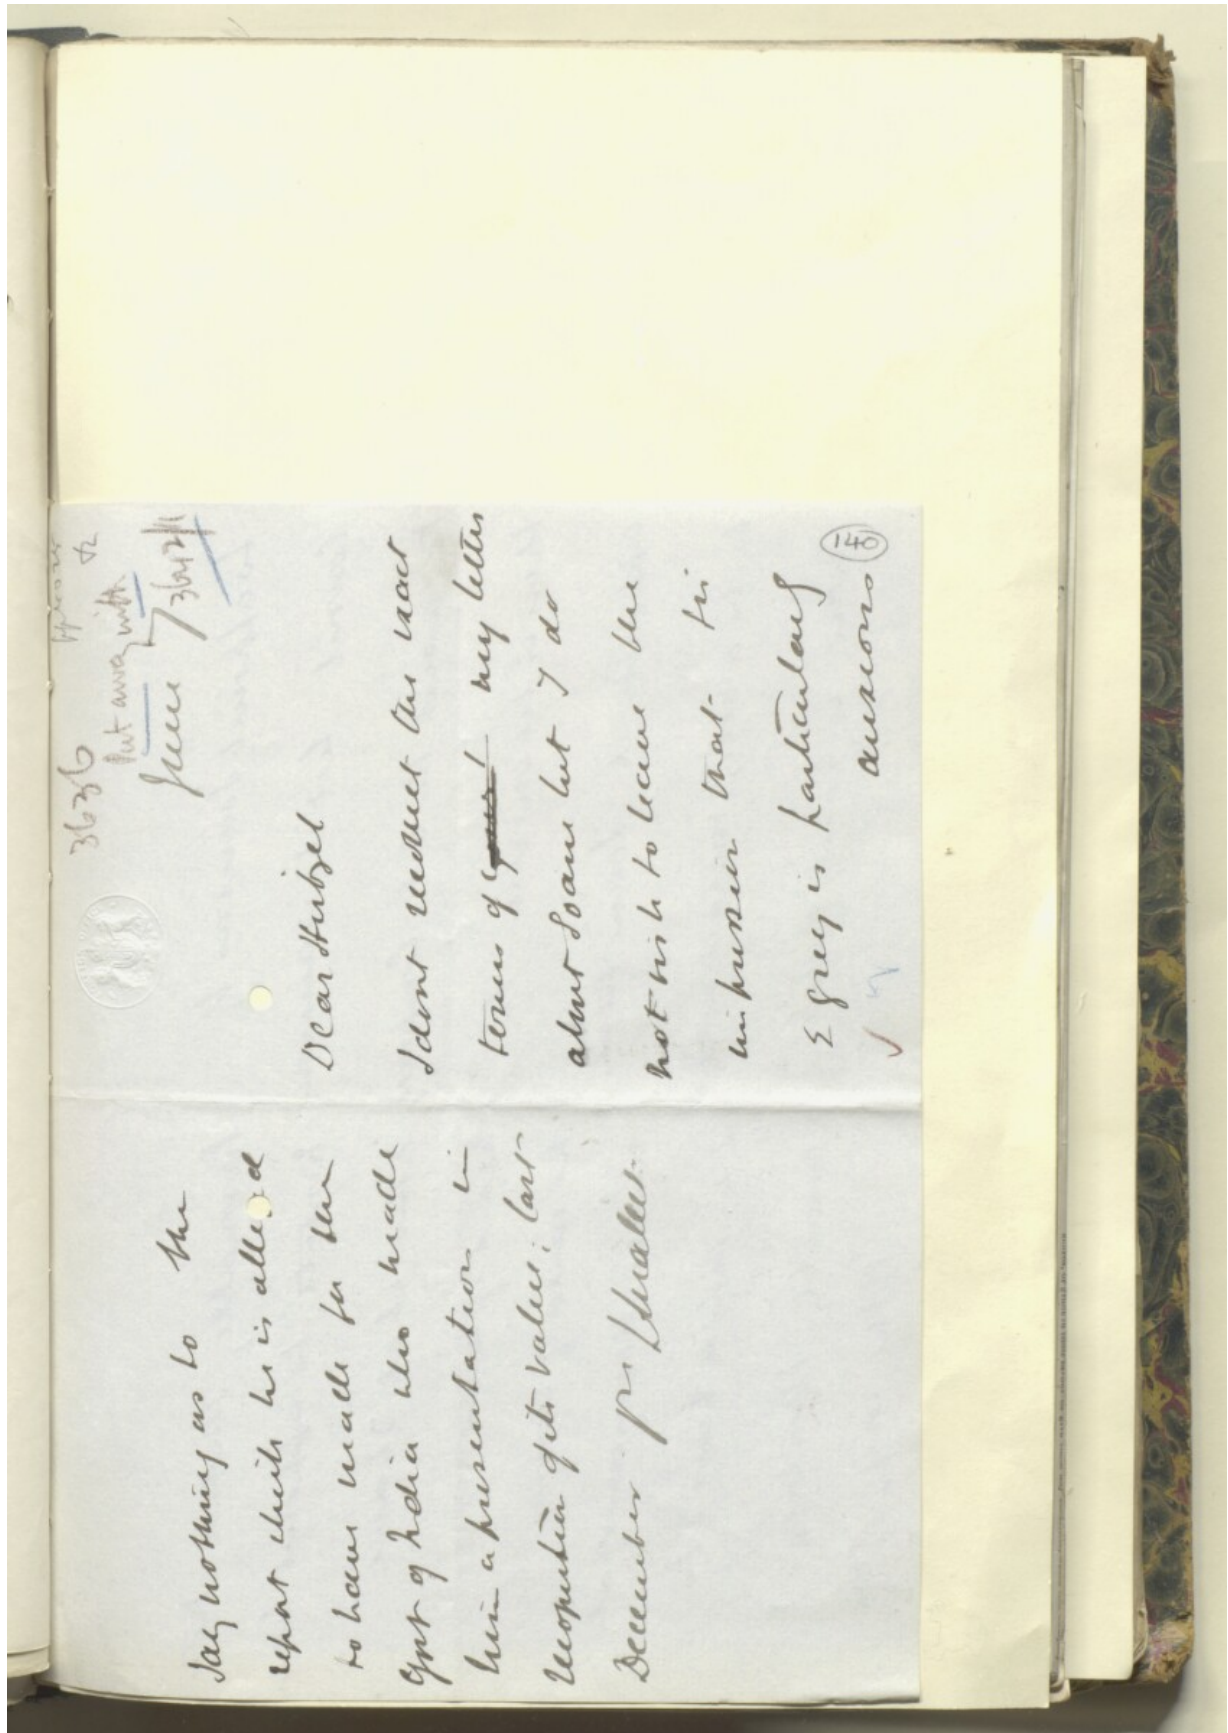 3636
Put away with
3642/11
June 7
Dear Hirtzel
I dont recollect the exact
terms of my letter
about Soane but I do
not wish to leave the
impression that Sir
E Grey is particularly
anxious
140
say nothing as to the
report which he is alleged
to have made for the
Govt of India who made
him a presentation in
recognition of its value; last
December